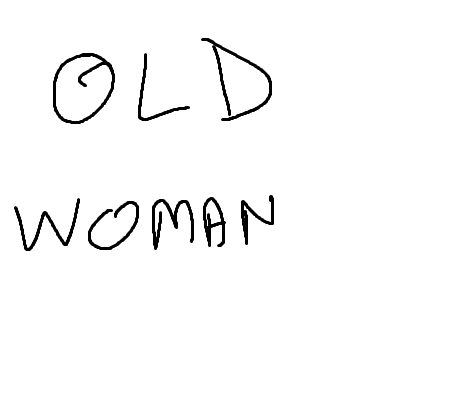 OLD
WOMAN